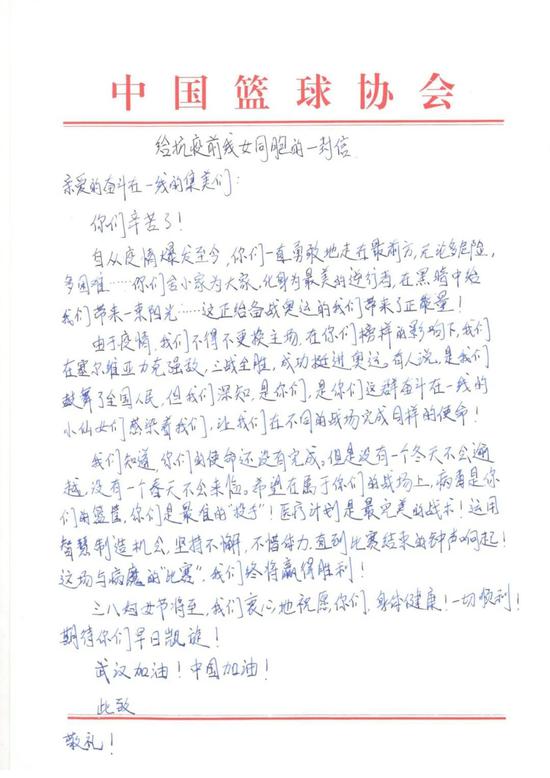 中国篮球协会
给抗疫前线女同胞的一封信
亲爱的奋斗在一线的集美们:
你们辛苦了!
自从疫情爆发至今,你们一直勇敢地走在最前方,无论多危险,
多困难……你们舍小家为大家,化身为最美的逆行者,在黑暗中给
我们带来一束阳光……这正给备战奥运的我们带来了正能量!
由于疫情,我们不得不更换主场,在你们榜样的影响下,我们
在塞尔维亚力克强敌,三战全胜,成功挺进奥运。有人说,是我们
鼓舞了全国人民,但我们深知,是你们,是你们这群奋斗在一线的
小仙女们感染着我们,让我们在不同的战场完成同样的使命!
我们知道,你们的使命还没有完成。但是没有一个冬天不会逾
越,没有一个春天不会来临。希望在属于你们的战场上,病毒是你
们的篮筐,你们是最佳的"投手"!医疗计划是最完美的战术!运用
智慧制造机会,坚持不懈,不惜体力,直到比赛结束的钟声响起!
这场与病魔的"比赛",我们终将赢得胜利!
三八妇女节将至,我们衷心地祝愿你们,身体健康!一切顺利!
期待你们早日凯旋!
武汉加油!中国加油!
此致
敬礼!